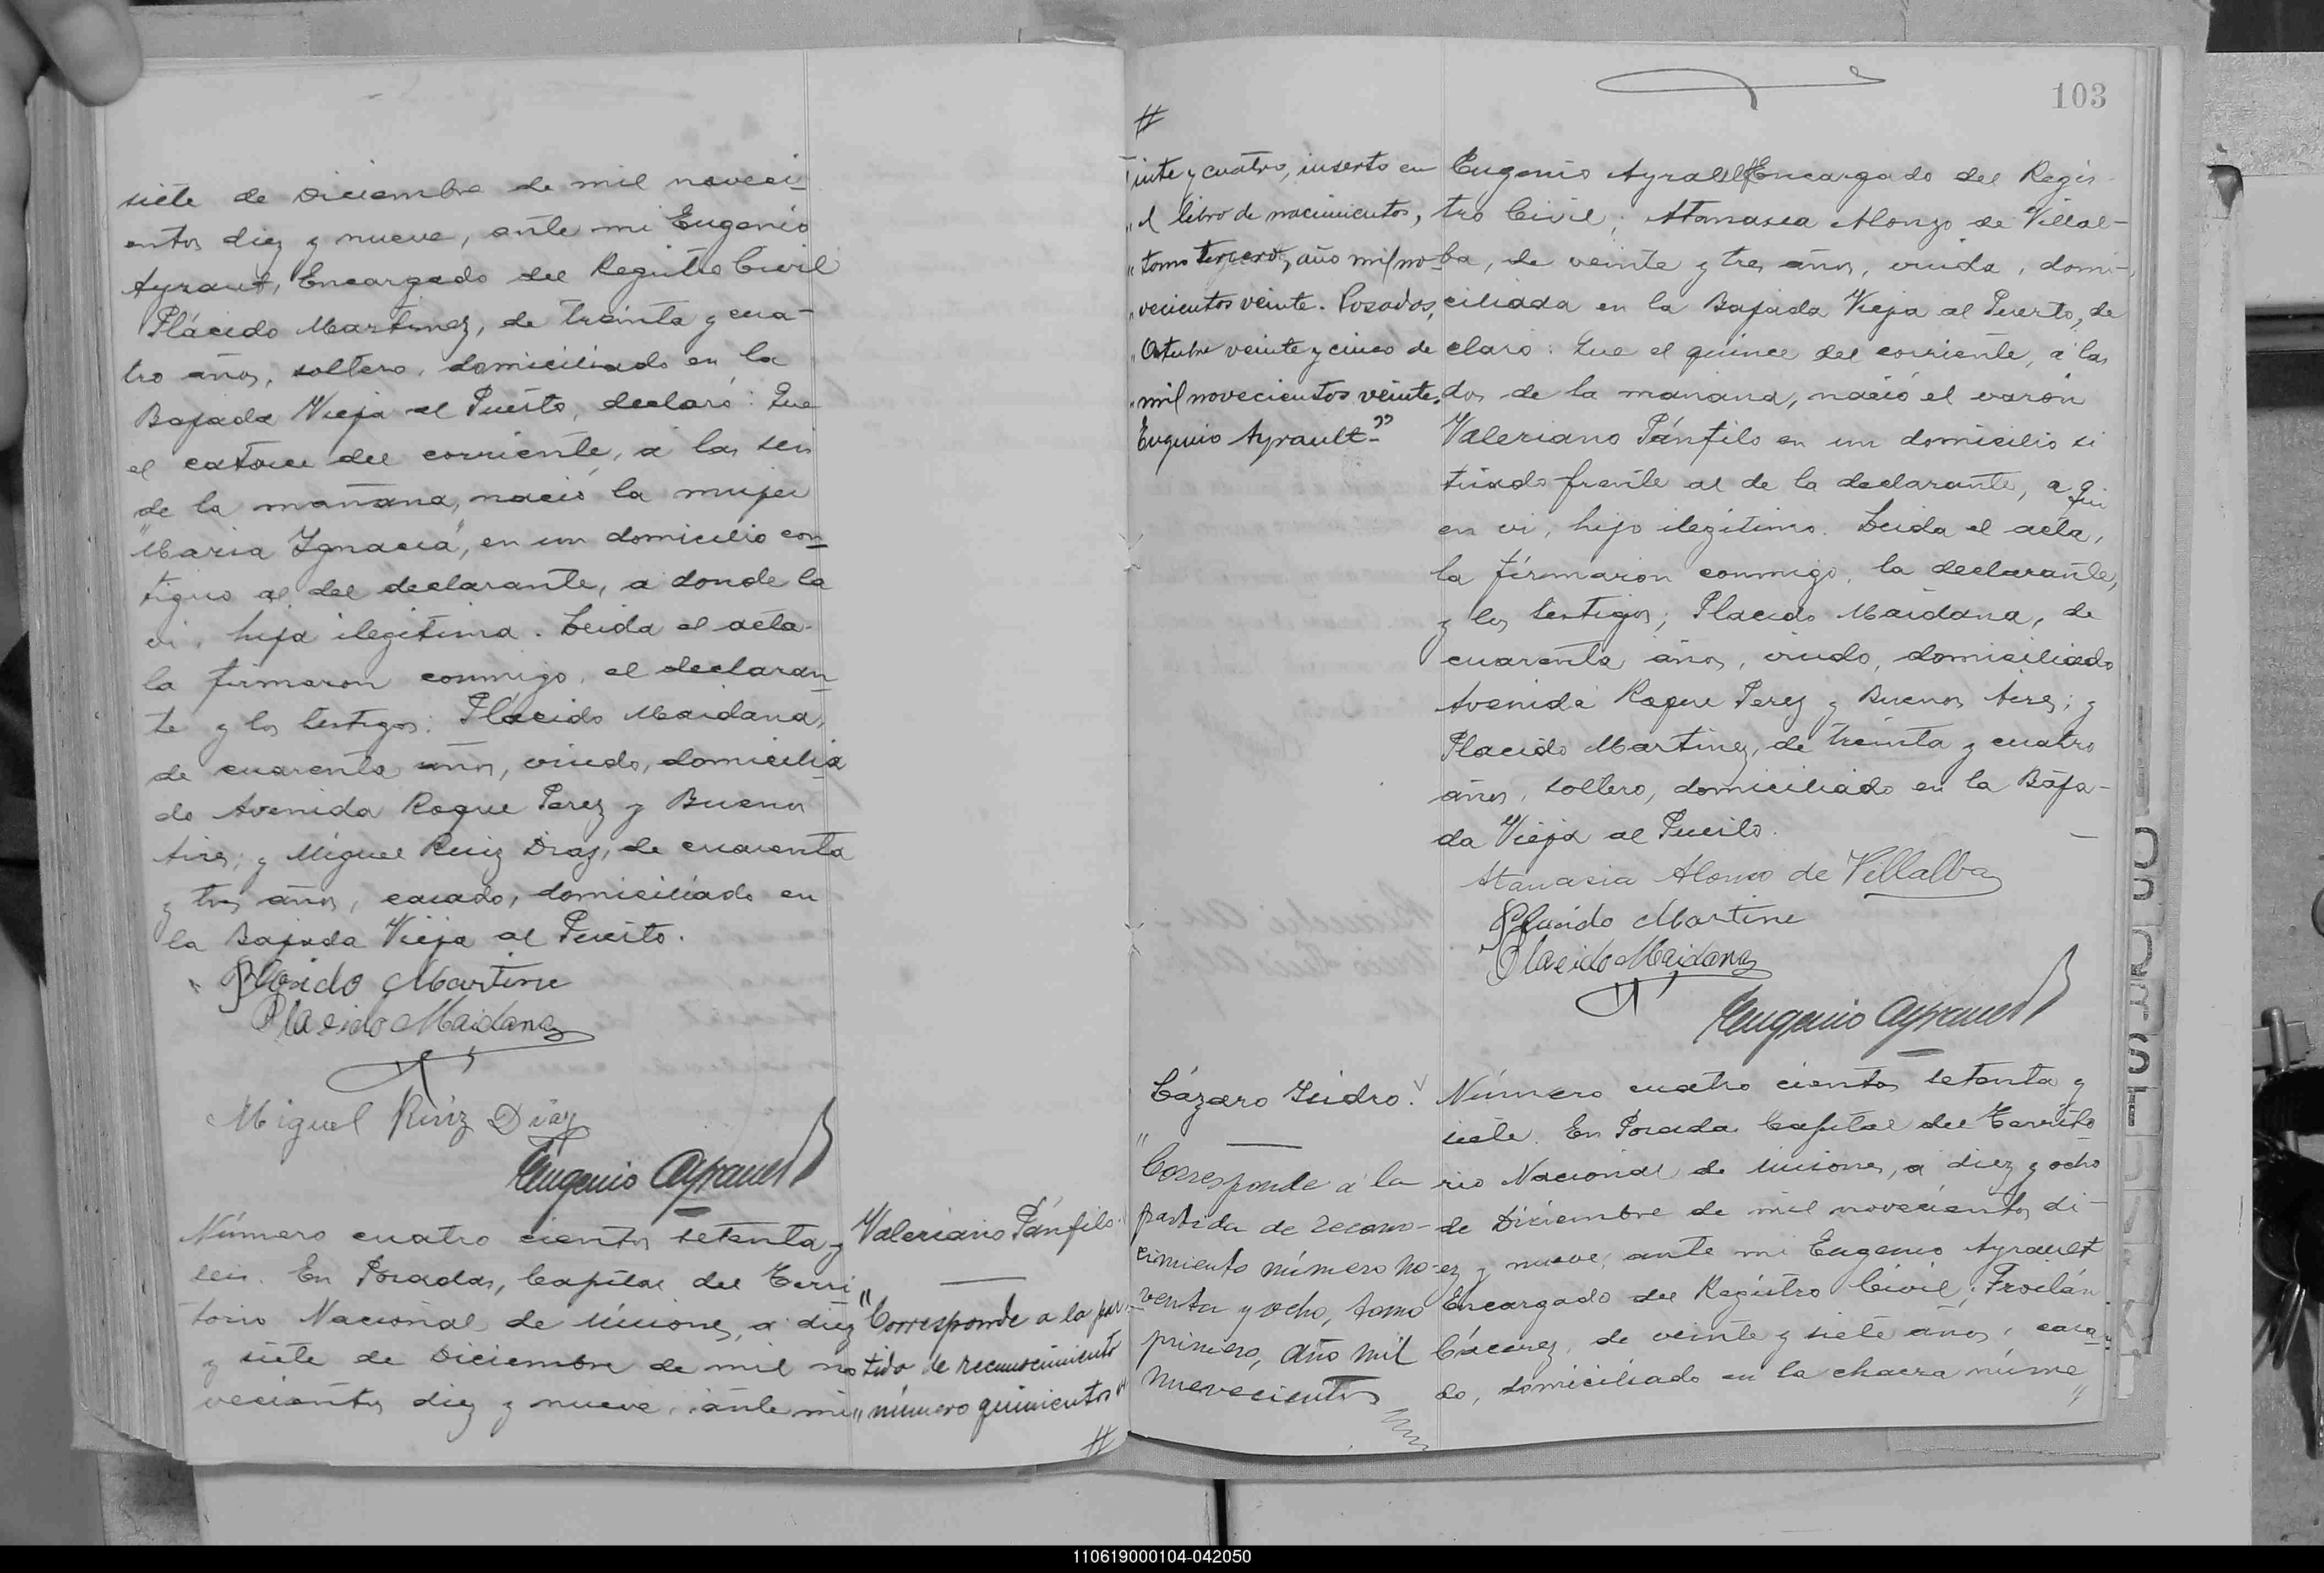 siete de Diciembre de mil noveci-
entos diez y nueve, ante mi Eugenio
Ayrault, Encargado del Registro Civil
Plácido Martinez, de treinta y cua-
tro años, soltero, domiciliado en la
Bajada Vieja al Puerto, declaró: Que
el catorce del corriente, a las seis
de la mañana, nació la mujer
"Maria Ignacia", en un domicilio con-
tiguo al del declarante, a donde la
vi, hija ilegitima. Leida el acta
la firmaron conmigo, el declaran-
te y los testigos: Plácido Maidana,
de cuarenta años, viudo, domicilia-
do Avenida Roque Perez y Buenos
Aires; y Miguel Ruiz Diaz, de cuarenta
y tres años, casado, domiciliado en
la Bajada Vieja al Puerto.
Plasido Martine
Plasido Maidana
Miguel Ruiz Diaz
Eugenio Ayrault
Número cuatro cientos setenta y
seis. En Posadas, Capital del Terri-
torio Nacional de Misiones, a diez
y siete de Diciembre de mil no-
vecientos diez y nueve, ante mi
Valeriano Pánfilo.
"Corresponde a la par-
tida de reconocimiento
"número quinientos
#
103
#
inte y cuatro, inserto en
"el libro de nacimientos,
"tomo tercero, año mil no-
"vecientos veinte. Posadas,
"Octubre veinte y cinco de
"mil novecientos veinte.
Eugenio Ayrault-"
Eugenio Ayrault Encargado del Regis-
tro Civil; Atanasia Alonzo de Villal-
ba, de veinte y tres años, viuda, domi-
ciliada en la Bajada Vieja al Puerto, de
claró: Que el quince del corriente, a las
dos de la mañana, nació el varón
Valeriano Pánfilo en un domicilio si
tuado frente al de la declarante, a qui
en vi, hijo ilegítimo. Leida el acta,
la firmaron conmigo, la declarante,
y los testigos; Placido Maidana, de
cuarenta años, viudo, domiciliado
Avenida Roque Perez y Buenos Aires; y
Placido Martinez, de treinta y cuatro
años, soltero, domiciliado en la Baja-
da Vieja al Puerto.
Atanasia Alonso de Villalba
Plasido Martine
Plasido Maidana
Eugenio Ayrault
Lázaro Isidro.
"Corresponde a la
partida de recono-
cimiento número no-
venta y ocho, tomo
primero, año mil
nuevecientos
Número cuatro cientos setenta y
siete. En Posadas Capital del Territo
rio Nacional de Misiones, a diez y ocho
de Diciembre de mil novecientos di-
ez y nueve, ante mi Eugenio Ayrault
Encargado del Registro Civil; Froilán
Cáceres, de veinte y siete años, casa-
do, domiciliado en la chacra núme
110619000104-042050